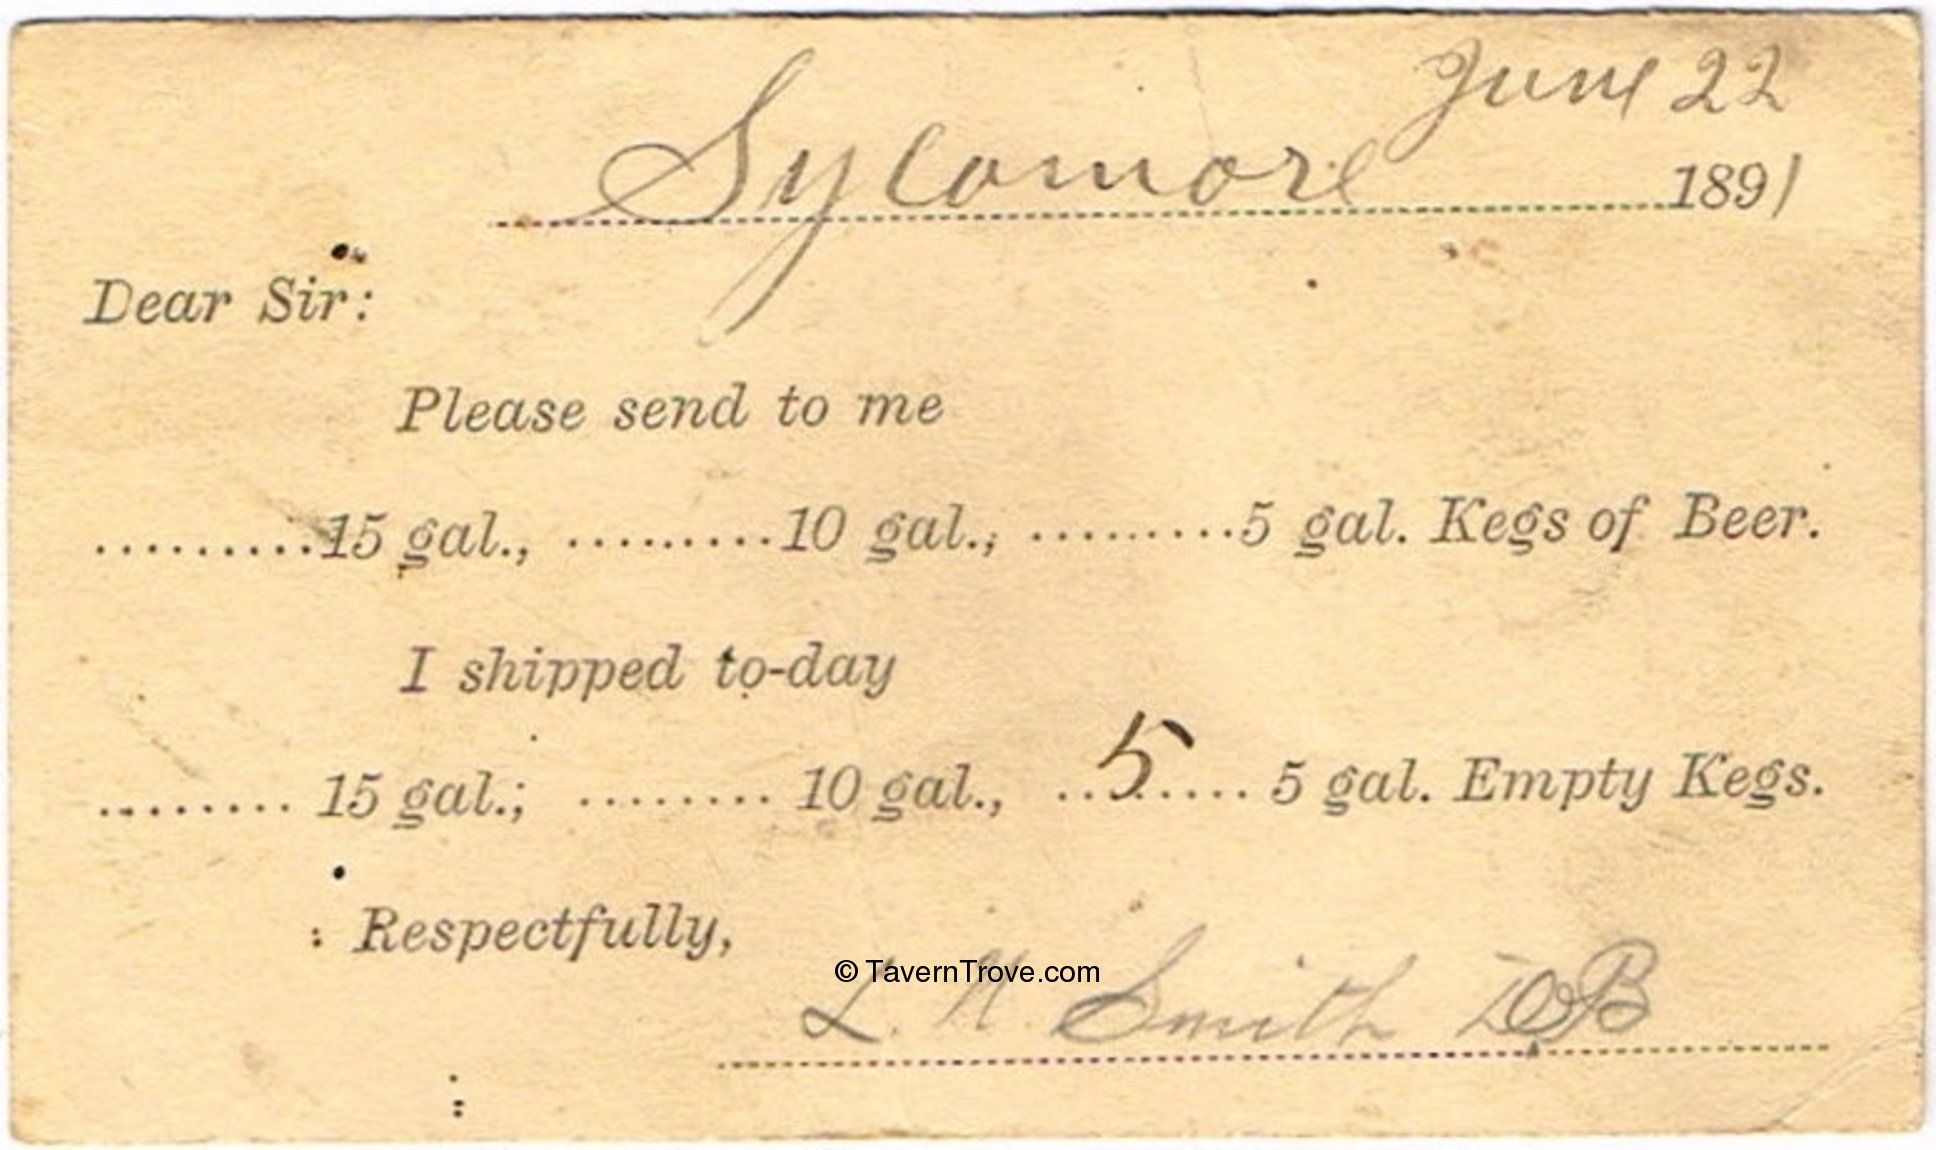 June 22
Sycamore 1891
Dear Sir:
Please send to me
.........15 gal., .........10 gal., .........5 gal. Kegs of Beer.
I shipped to-day
......... 15 gal.; ........ 10 gal., ..5..... 5 gal. Empty Kegs.
Respectfully,
© TavernTrove.com
L. N. Smith